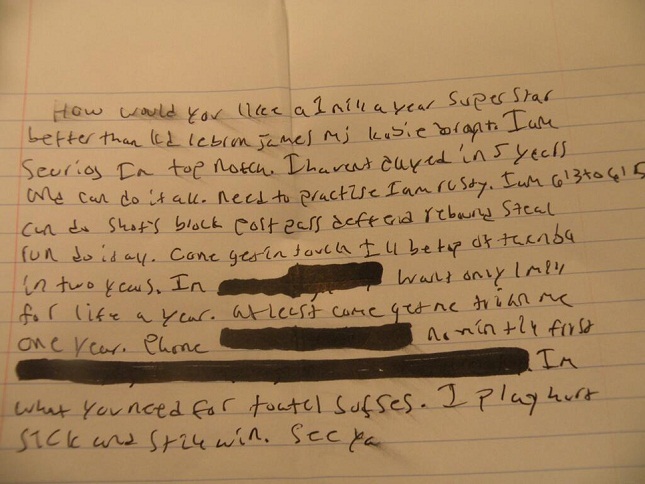 How would you like a 1 mill a year Superstar
better than kd lebron james mj kobie I am
Seurios Im top notch. I havent in 5 years
and can do it all. need to practise I am rusty. I am 6'3 to 6'5
can do shots block post pass deffend rebound steal
run do it all. Come get in touch Ill be top of the nba
in two years. Im want only 1 mill
for life a year. at least come get me me
one year. Phone first
Im
what you need for sufses. I play hurt
SICK and still win. See ya